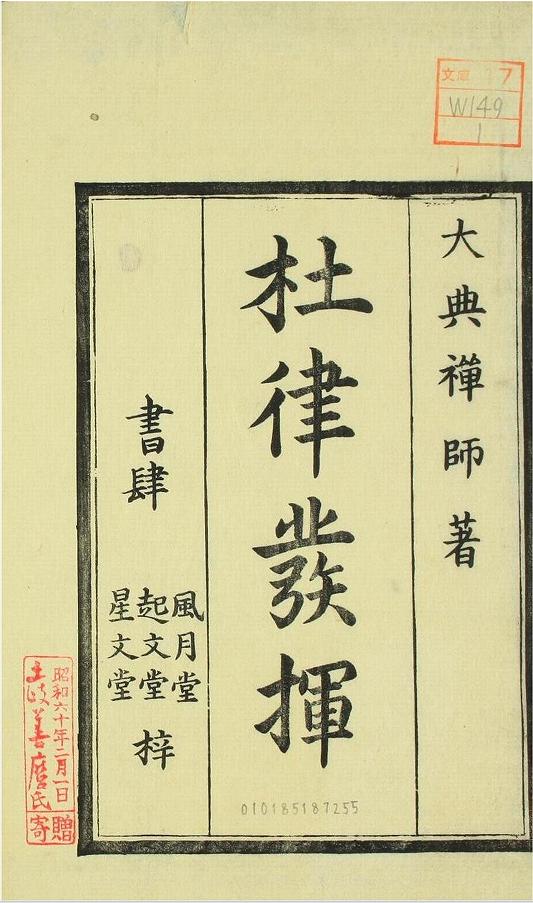 文庫 7
W149
1
大典禪師著
杜律發揮
書肆
風月堂
起文堂
星文堂
梓
010185187255
昭和六十年二月一日
土岐善麿氏
寄贈